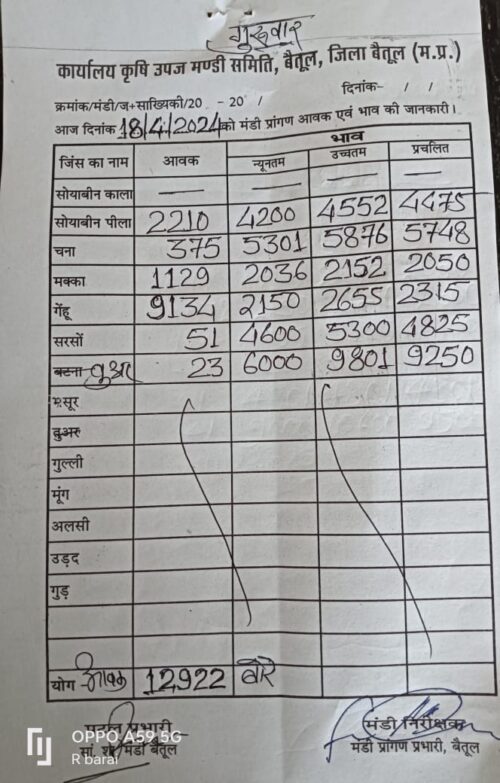 गुरूवार
कार्यालय कृषि उपज मण्डी समिति, बैतूल, जिला बैतूल (म.प्र.)
क्रमांक/मंडी/ज+साख्यिकी/20 - 20 / दिनांक- / /
आज दिनांक 18/4/2024 को मंडी प्रांगण आवक एवं भाव की जानकारी।
जिंस का नाम आवक भाव
न्यूनतम उच्चतम प्रचलित
सोयाबीन काला — — — —
सोयाबीन पीला 2210 4200 4552 4475
चना 375 5301 5876 5748
मक्का 1129 2036 2152 2050
गेंहू 9134 2150 2655 2315
सरसों 51 4600 5300 4825
बटना तुअर 23 6000 9801 9250
मसूर
तुअर
गुल्ली
मूंग
अलसी
उड़द
गुड़
योग आवक 12922 बोरे
प्रभारी मंडी निरीक्षक
सां. शा. मंडी बैतूल मंडी प्रांगण प्रभारी, बैतूल
OPPO A59 5G
R barai